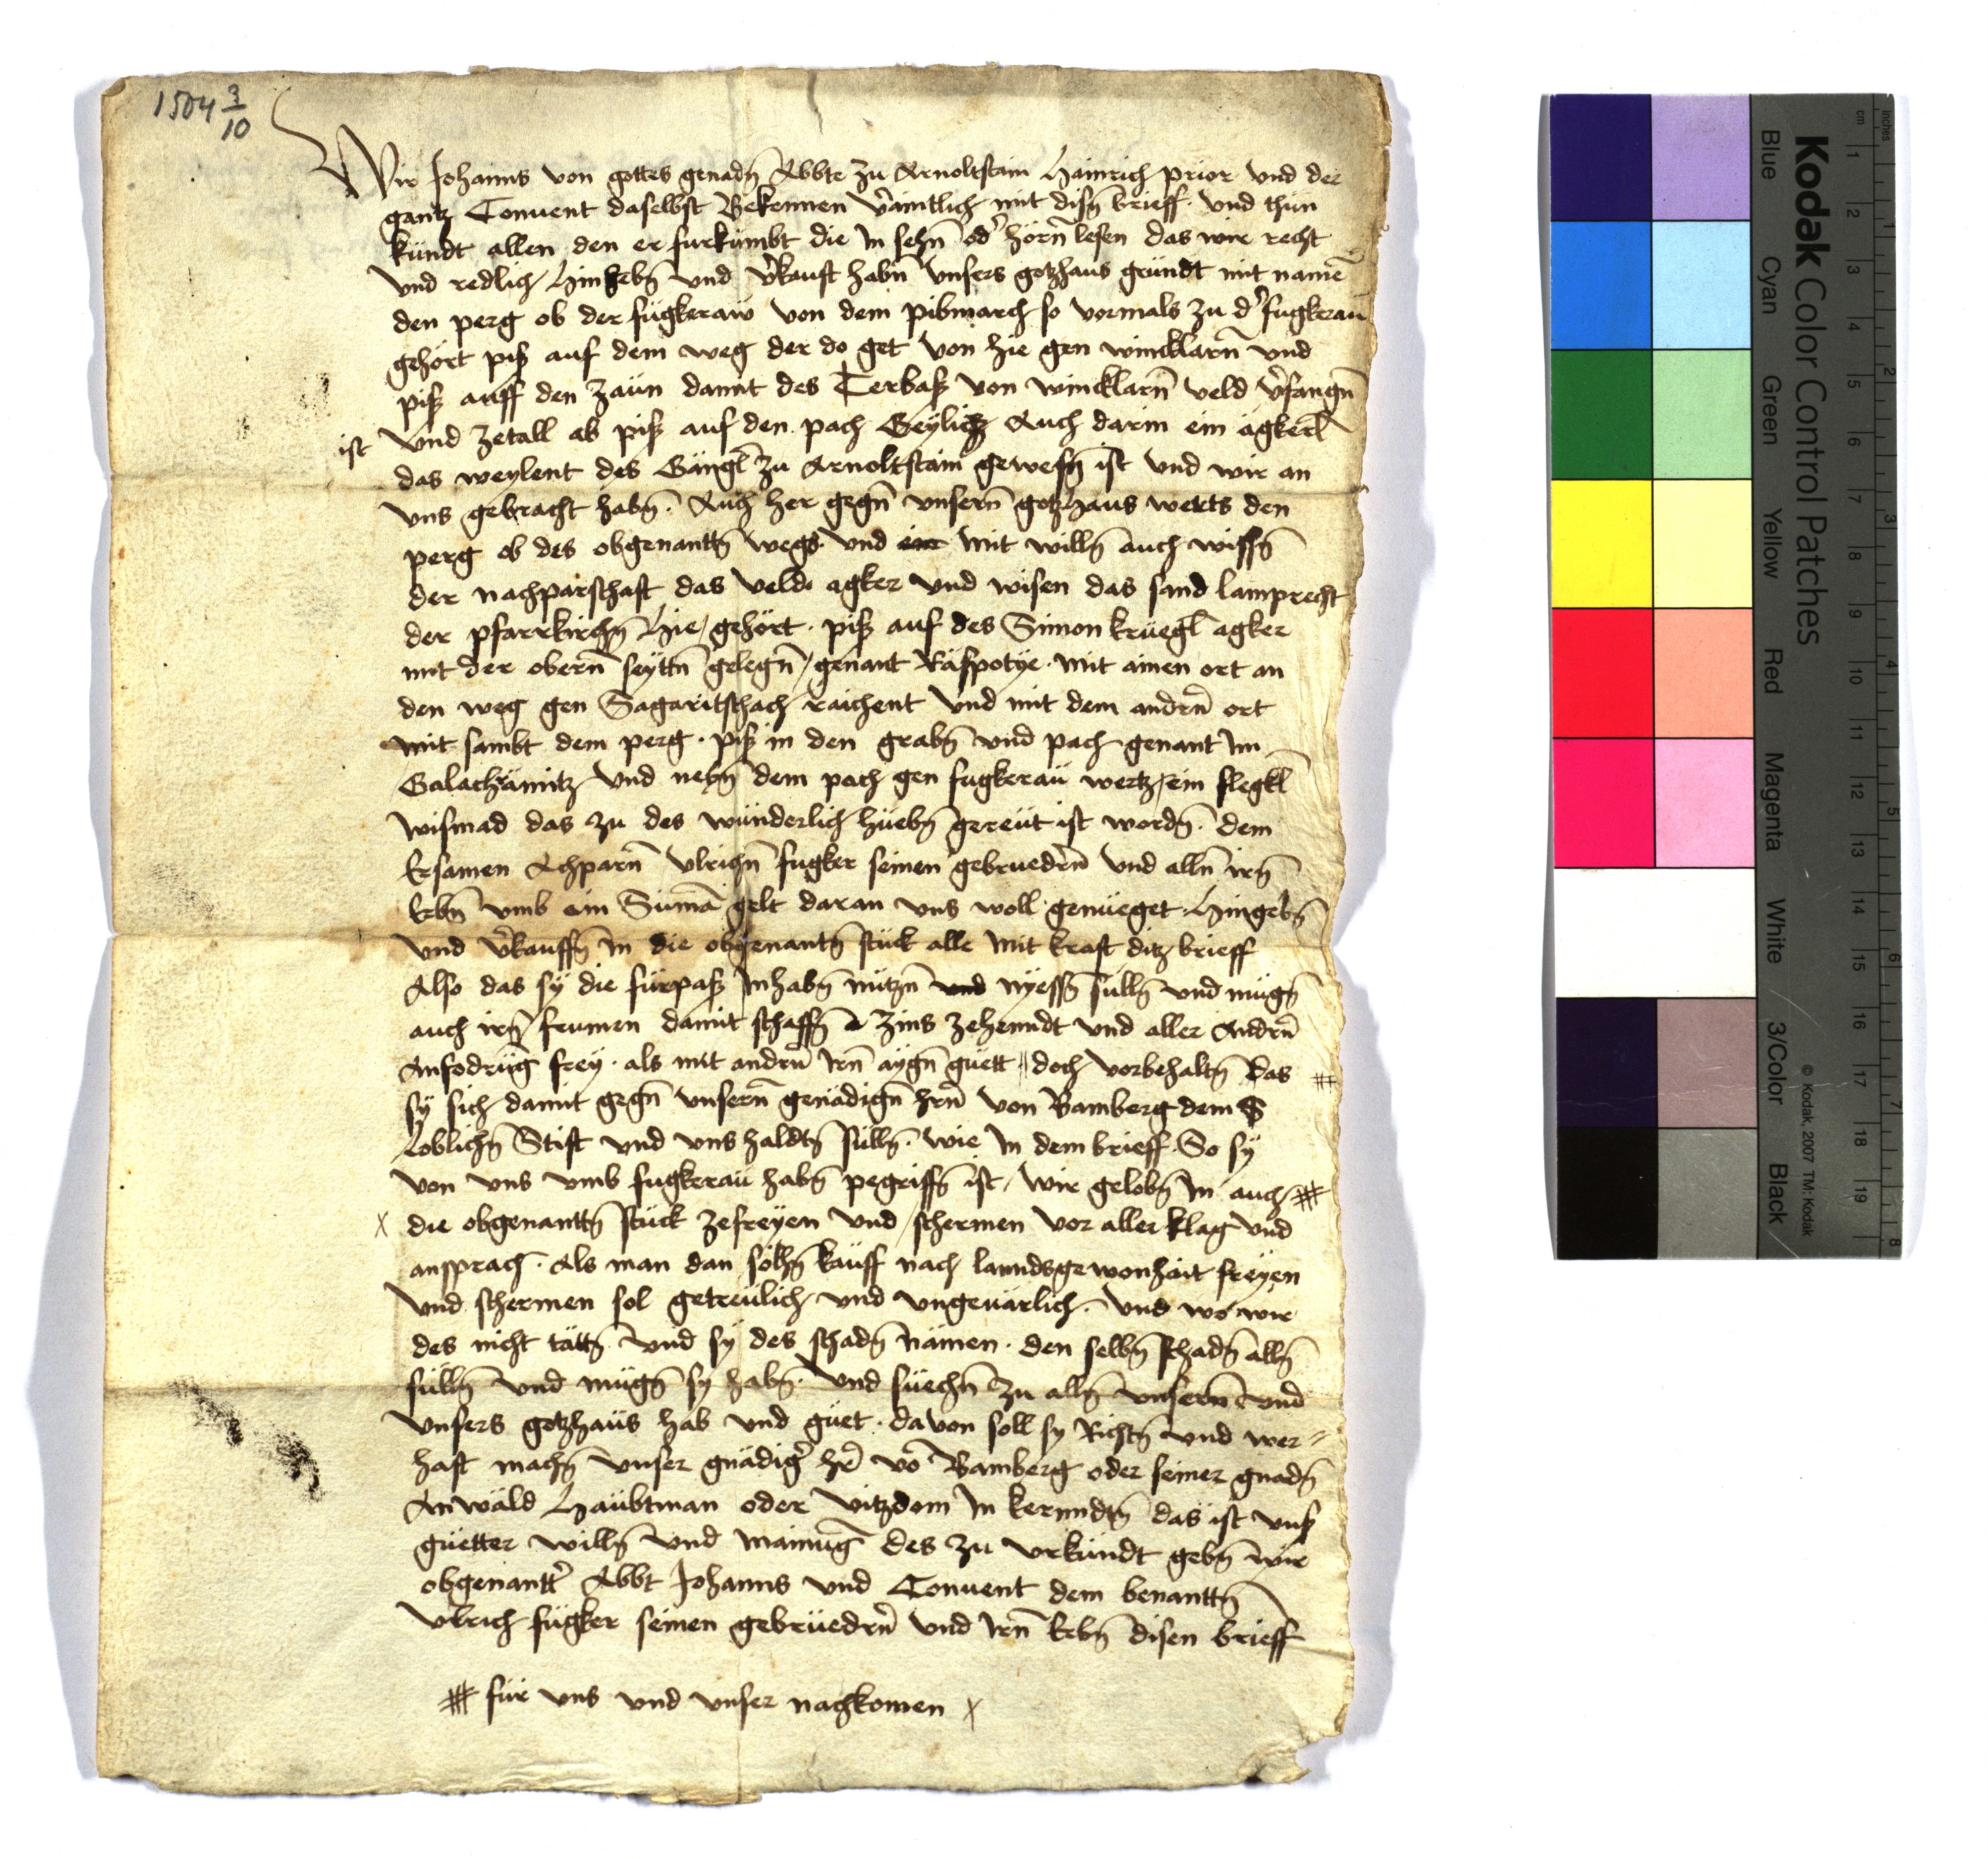 1504 3/10
Wir Johanns von gottes genadn̄ Abbte zu Arnoltstain Hainrich prior vnd der
gantz Conuent daselbst Bekennen v̄amtlich mit disn̄ brieff. Vnd thün
kündt allen den er furkümbt die In sehn̄ od' hörn̄ lesen das wir recht
Vnd redlich Hin gebn̄ vnd v̄kauft habn̄ Vnsers gotzhaus gründt mit namē
den perg ob der fügkeraw von dem pibmarch so vormals zu d' fugkeraü
gehört piß auf dem weg der do get von hie gen wincklarn̄ vnd
piß auff den zaün damit des Terbaß von wincklarn̄ veld v̄fangn̄
ist Vnd zetall ab piß auf den pach Geylicz Auch darin ein ägkerl
das weylent des Gängl zu Arnoltstain gewesn̄ ist vnd wir an
vns gebracht habn̄. Auch her gegn̄ vnsern̄ gotzhaus werts den
perg ob des obgenanttn̄ wegs. Vnd ein mit willn̄ auch wissn̄
der nachparschaft das veld agker vnd wisen das sand lamprecht
der pfarrkirchn̄ Hie gehört. piß auf des Simon krüegl agker
mit der obern̄ seyttn̄ gelegn̄/ genant Räspotye. mit ainen ort an
den weg gen Sagaritschach raichent Vnd mit dem andrn̄ ort
mit sambt dem perg. piß in den grabn̄ vnd pach genant Im
Galachämitz Vnd nebn̄ dem pach gen fugkeraü wertz/ ein flegkl
wismad das zu des wünderlich hüebn̄ gereüt ist wordn̄. dem
Ersamen Achparn̄ Vlrichn̄ fugker seinen gebruedern̄ vnd alln̄ irn̄
Erbn̄ vmb ein Sumā gelt daran vns woll genüeget. Hingebn̄
vnd v̄kauffn̄ In die obgenantn̄ stück alle mit kraft ditz brieff
Also das sÿ die fürpaß Inhabn̄ nützn̄ vnd nÿessn̄ sülln̄ vnd mügn̄
auch irn̄ frumen damit schaffn̄ zins zehenndt vnd aller Andrn̄
Anfodrūg frey. als mit andrn̄ Irn̄ aygn̄ guett // doch vorbehaltn̄ das #
sÿ sich damit gegn̄ vnsern̄ genädign̄ hrn̄ von Bamberg dem S
Loblichn̄ Stift vnd vns haldtn̄ sülln̄. wie In dem brieff. So sÿ
von vns vmb fugkeraü habn̄ pegriffn̄ ist/ wir gelobn̄ In auch #
X die obgenanttn̄ stück zefreyen vnd schermen vor aller klag vnd
ansprach. Als man dan sölhn̄ käuff nach lanndsgewonhait freÿen
Vnd schermen sol getreülich vnd vngeuärlich. Vnd wo wir
des nicht tättn̄ vnd sÿ des schadn̄ nämen. den selbn̄ schadn̄ alln̄
sülln̄ vnd mügn̄ sy habn̄. Vnd süechn̄ zu alln̄ vnsern̄ vnd
vnsers gotzhaüs hab vnd güet. davon soll sy Richtn̄ vnd wer=
haft machn̄ vnser gnädigr̄ hr̄ vō Bamberg oder seiner gnadn̄
Anwäld Haübtman oder vitzdom In kernndtn̄ das ist vnß
güetter willn̄ vnd mainūg des zu vrkündt gebn̄ wir
obgenantt' Abbt Johanns vnd Conuent dem benanttn̄
Vlrich fügker seinen gebrüedrn̄ vnd Irn̄ Erbn̄ disen brieff
# für vns vnd vnser nachkomen X
Kodak Color Control Patches
Blue Cyan Green Yellow Red Magenta White 3/Color Black
© Kodak, 2007 TM: Kodak
inches 1 2 3 4 5 6 7 8
cm 1 2 3 4 5 6 7 8 9 10 11 12 13 14 15 16 17 18 19